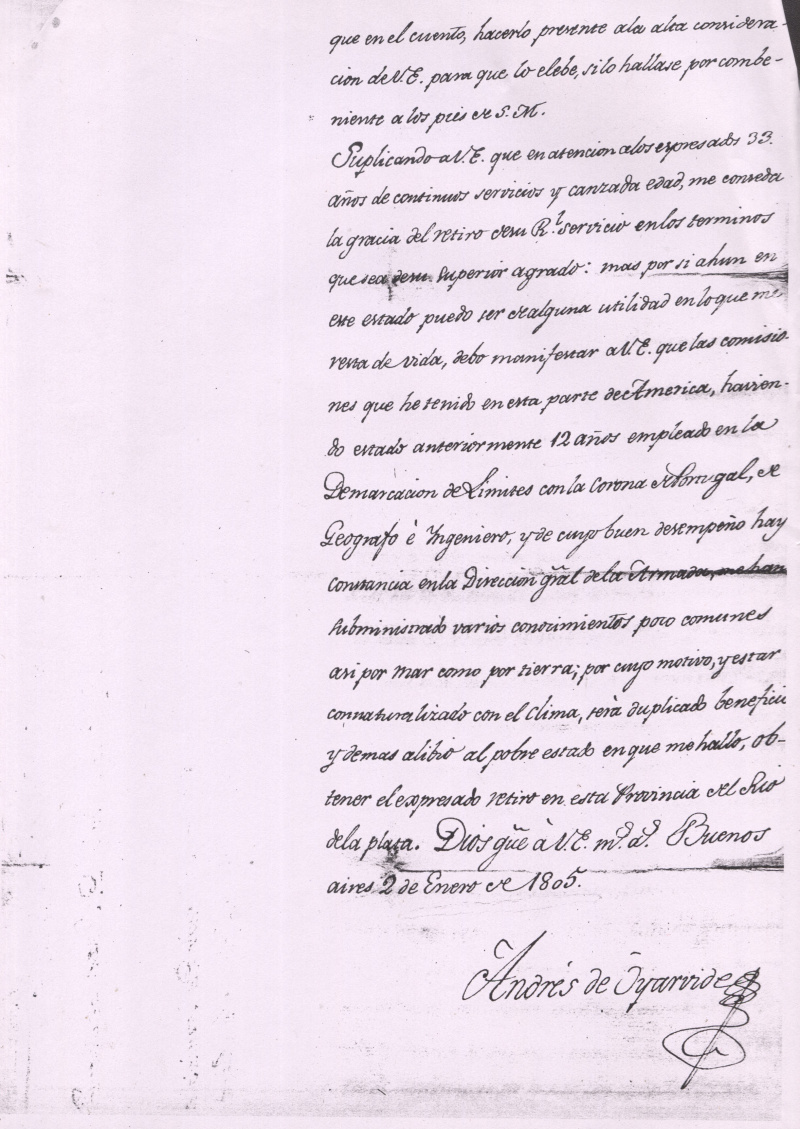 que en el cuento, hacerlo presente ala alta considera-
cion de V.E. para que lo elebe, si lo hallase por combe-
niente a los pies de S.M.
Suplicando a V.E. que en atencion alos expresados 33.
años de continuos servicios y canzada edad, me conseda
la gracia del retiro desu R.l servicio en los terminos
que sea desu Superior agrado: mas por si ahun en
este estado puedo ser de alguna utilidad en lo que me
resta de vida, debo manifestar a V.E. que las comisio-
nes que he tenido en esta parte de America, havien-
do estado anteriormente 12 años empleado en la
Demarcacion de Limites con la Corona de Portugal, de
Geografo è Yngeniero, y de cuyo buen desempeño hay
constancia en la Direccion gral de la Armada, me han
subministrado varios conocimientos poco comunes
asi por Mar como por tierra; por cuyo motivo, y estar
connaturalizado con el Clima, serà duplicado beneficio
y demas alibio al pobre estado en que me hallo, ob-
tener el expresado retiro en esta Provincia del Rio
dela plata. Dios gũe à V.E. m.s a.s Buenos
aires 2 de Enero de 1805.
Andrés de Oyarvide